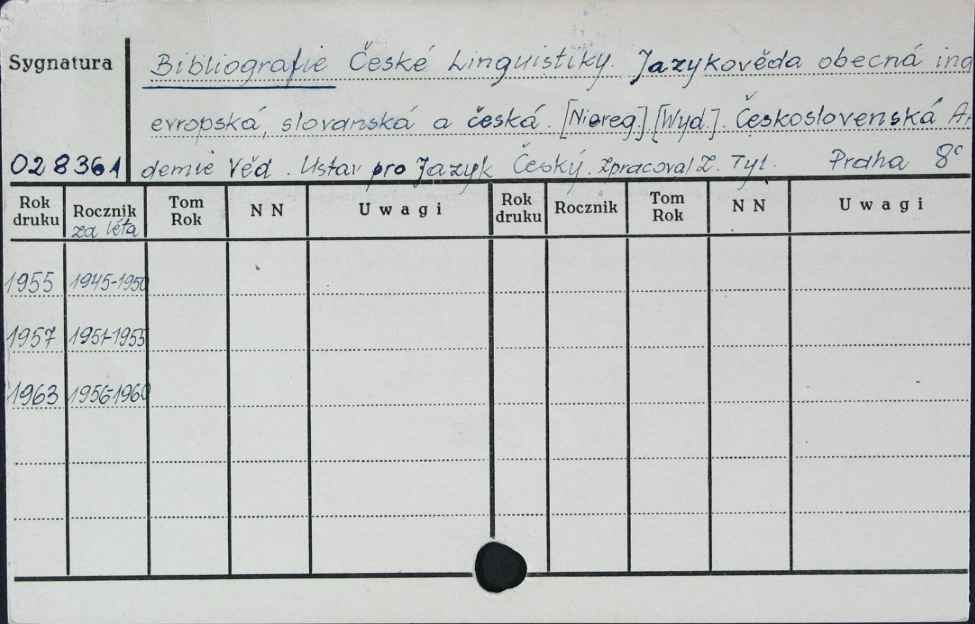 Sygnatura
028361
Bibliografie České Linguistiky. Jazykověda obecná ind
evropská, slovanská a česká. [Niereg.] [Wyd.]. Československá A
demie Věd. Ustav pro Jazyk Český. Zpracoval Z. Tyl. Praha 8°
Rok druku Rocznik Tom Rok NN Uwagi Rok druku Rocznik Tom Rok NN Uwagi
za léta
1955 1945-1950
1957 1951-1955
1963 1956-1960